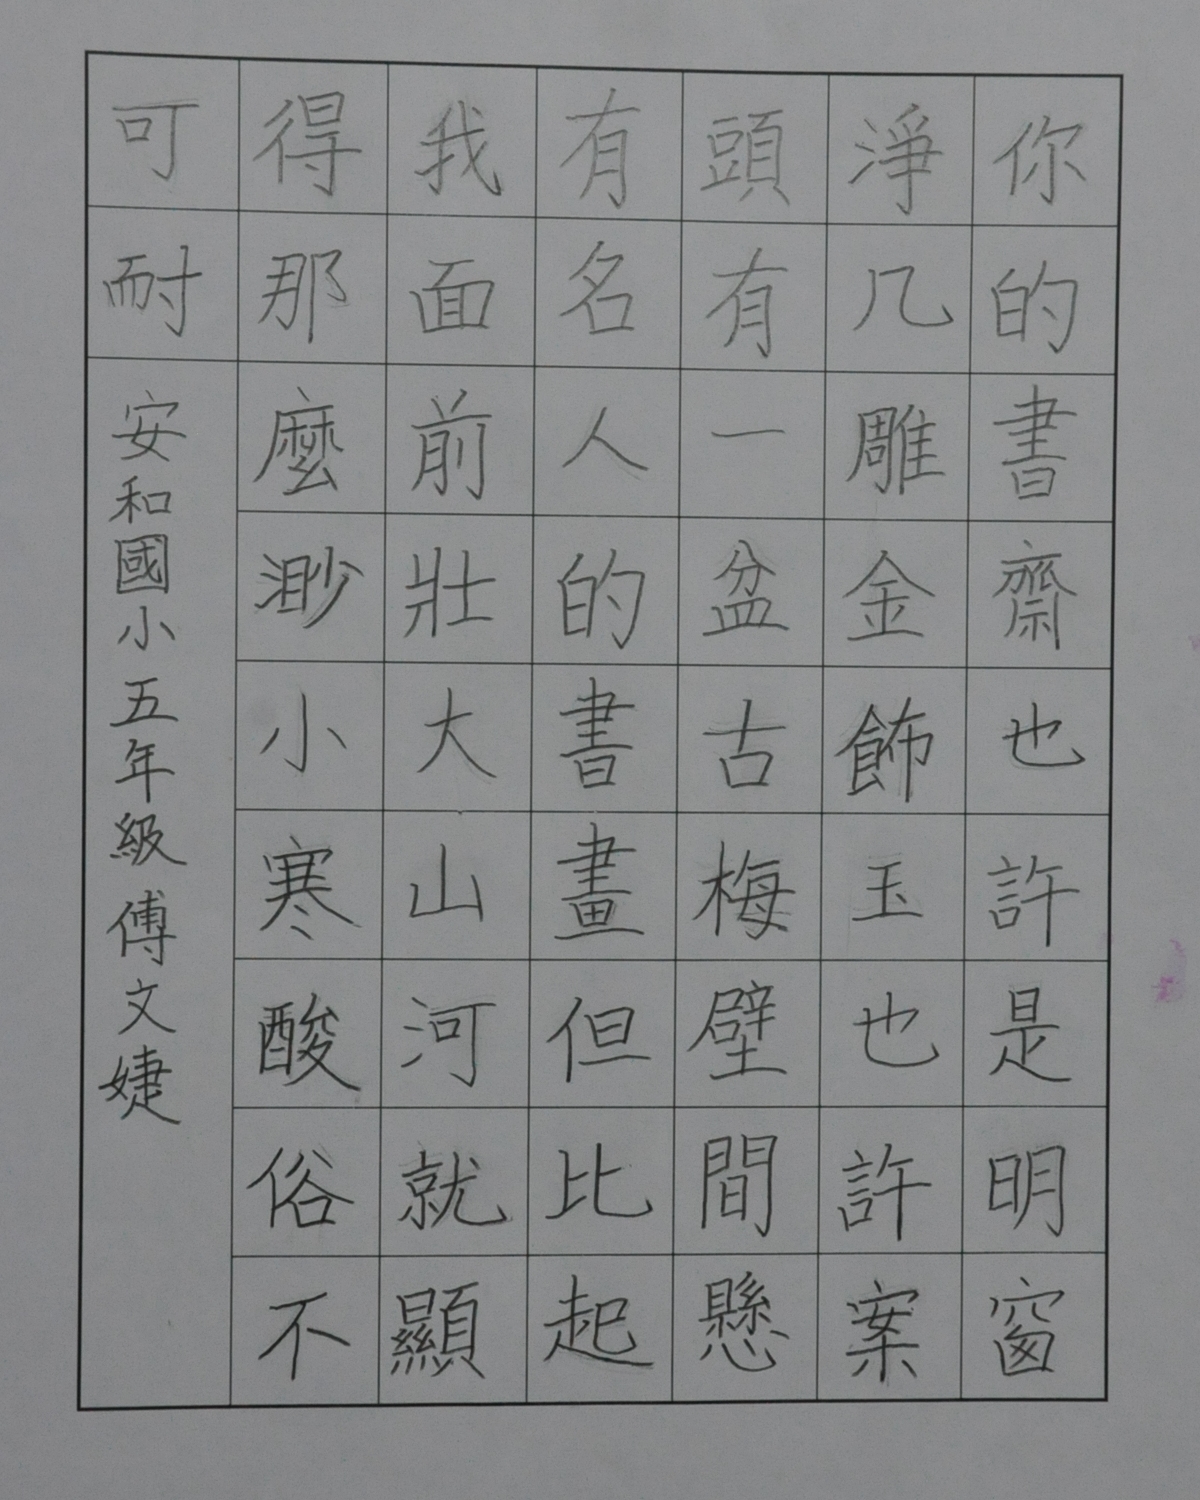 你的書齋也許是明窗
淨几雕金飾玉也許案
頭有一盆古梅壁間懸
有名人的書畫但比起
我面前壯大山河就顯
得那麼渺小寒酸俗不
可耐
安和國小五年級傅文婕